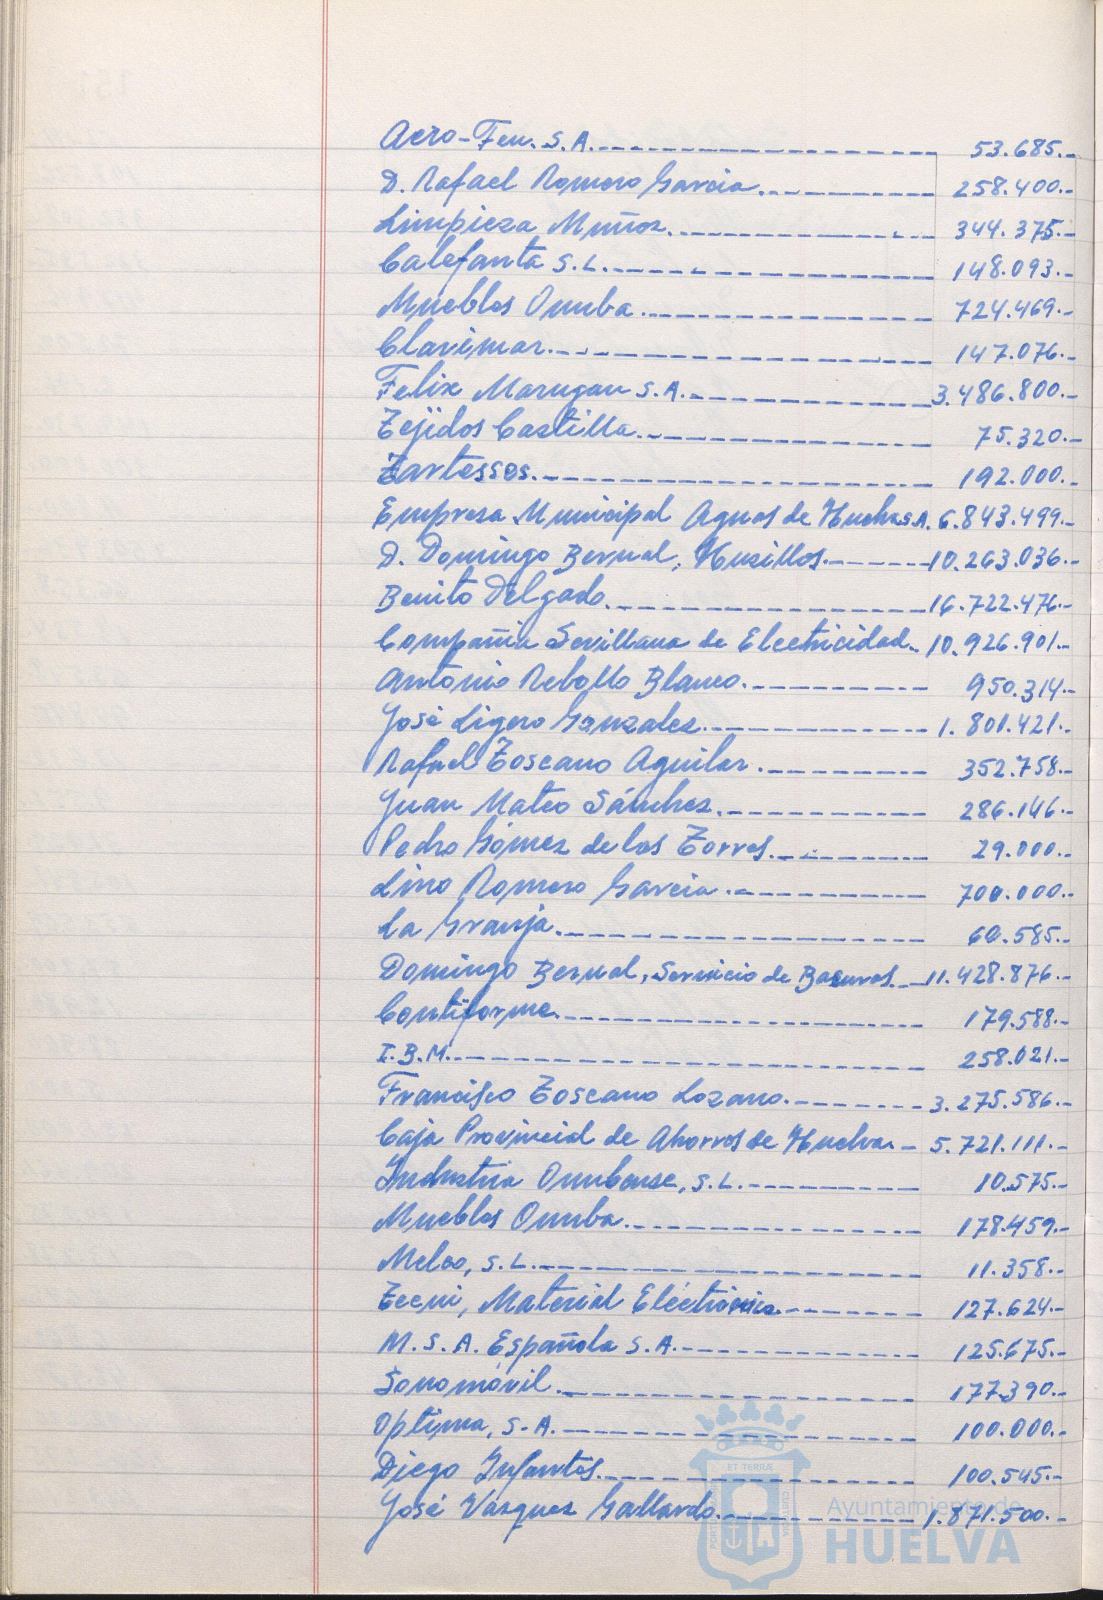 Aero-Feu. S.A. 53.685.-
D. Rafael Romero Garcia 258.400.-
Limpieza Muñoz 344.375.-
Calefanta S.L. 148.093.-
Muebles Onuba 724.469.-
Clavimar 147.076.-
Felix Marugan S.A. 3.486.800.-
Tejidos Castilla 75.320.-
Tartessos 192.000.-
Empresa Municipal Aguas de Huelva S.A. 6.843.499.-
D. Domingo Bernal, Husillos 10.263.036.-
Benito Delgado 16.722.476.-
Compañia Sevillana de Electricidad 10.926.901.-
Antonio Rebollo Blanco 950.314.-
José Ligero Gonzalez 1.801.421.-
Rafael Toscano Aguilar 352.758.-
Juan Mateo Sánchez 286.146.-
Pedro Gómez de las Torres 29.000.-
Lino Romero Garcia 700.000.-
La Granja 60.585.-
Domingo Bernal, Servicio de Basuras 11.428.876.-
Contiforme 179.588.-
I.B.M. 258.021.-
Francisco Toscano Lozano 3.275.586.-
Caja Provincial de Ahorros de Huelva 5.721.111.-
Industria Onubense, S.L. 10.575.-
Muebles Onuba 178.459.-
Melco, S.L. 11.358.-
Tecni, Material Eléctrónico 127.624.-
M.S.A. Española S.A. 125.675.-
Sonomóvil 177.390.-
Optima, S.A. 100.000.-
Diego Infantes 100.545.-
José Vázquez Gallardo 1.871.500.-
Ayuntamiento de
HUELVA